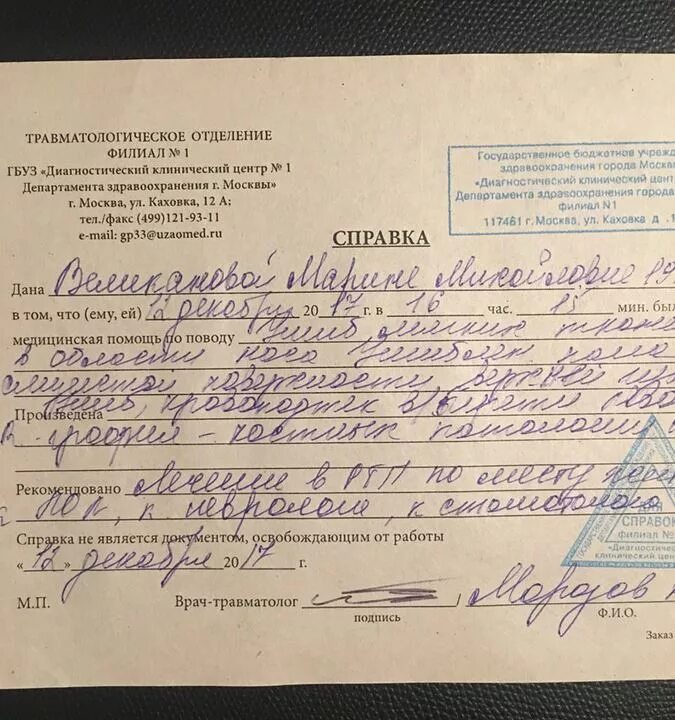 ТРАВМАТОЛОГИЧЕСКОЕ ОТДЕЛЕНИЕ
ФИЛИАЛ № 1
ГБУЗ «Диагностический клинический центр № 1
Департамента здравоохранения г. Москвы»
г. Москва, ул. Каховка, 12 А;
тел./факс (499)121-93-11
e-mail: gp33@uzaomed.ru
Государственное бюджетное учрежд
здравоохранения города Москв
«Диагностический клинический цент
Департамента здравоохранения города
филиал N1
117461 г. Москва, ул. Каховка д .1
СПРАВКА
Дана Великановой Марине Михайловне 19
в том, что (ему, ей) 12 декабря 2017 г. в 16 час. 15 мин. бы
медицинская помощь по поводу Ушиб мягких ткане
в области носа Ушиблен
слизистой поверхности верхней
Произведена
графия - костных патологии
Рекомендовано Лечение в РТП по месту
к неврологу, к стоматологу
Справка не является документом, освобождающим от работы
СПРАВОК
Филиал №
«Диагностическ
клинический цен
« 12 » декабря 2017 г.
М.П. Врач-травматолог , Морозов
подпись Ф.И.О.
Заказ